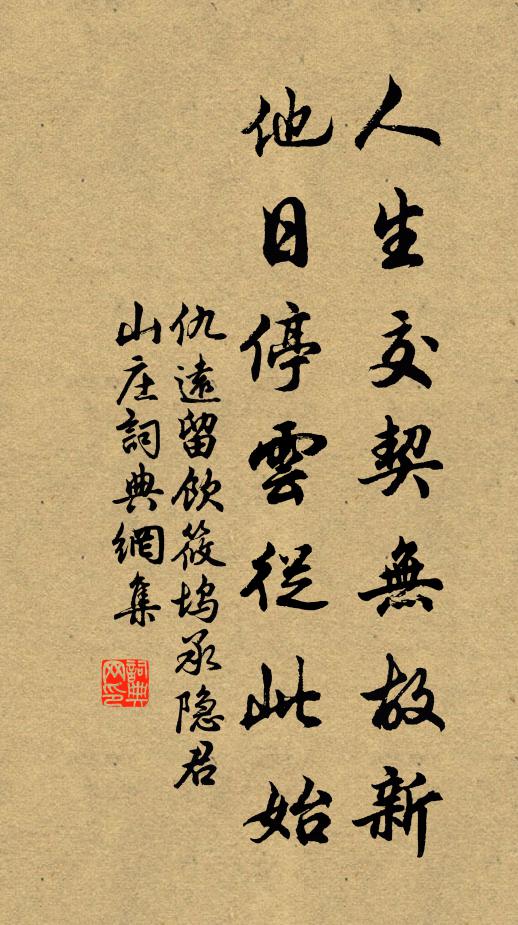 人生交契無故新
他日停雲從此始
仇遠留飲筱塢承隐君
山庄詞典網集
詞典网印